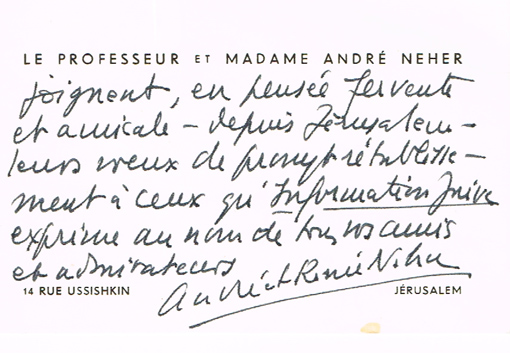 LE PROFESSEUR ET MADAME ANDRÉ NEHER
joignent, en pensée fervente
et amicale – depuis Jérusalem –
leurs vœux de prompt rétablisse–
ment à ceux qu'Information Juive
exprime au nom de tous vos amis
et admirateurs
André et Renée Neher
14 RUE USSISHKIN
JÉRUSALEM